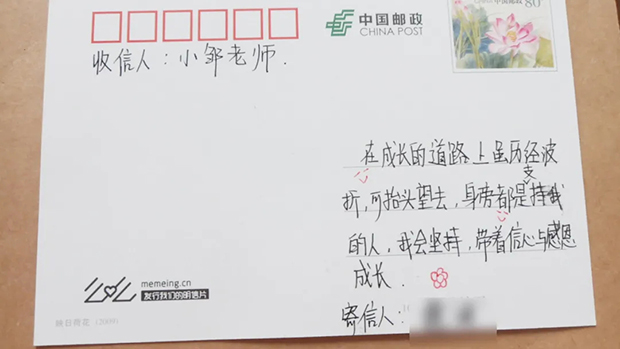 中国邮政
CHINA POST
中国邮政
80
收信人：小邹老师.
在成长的道路上虽历经波
折,可抬头望去,身旁都是支持我
的人,我会坚持,带着信心与感恩
成长.
寄信人：
memeing.cn
发行我们的明信片
(2009)